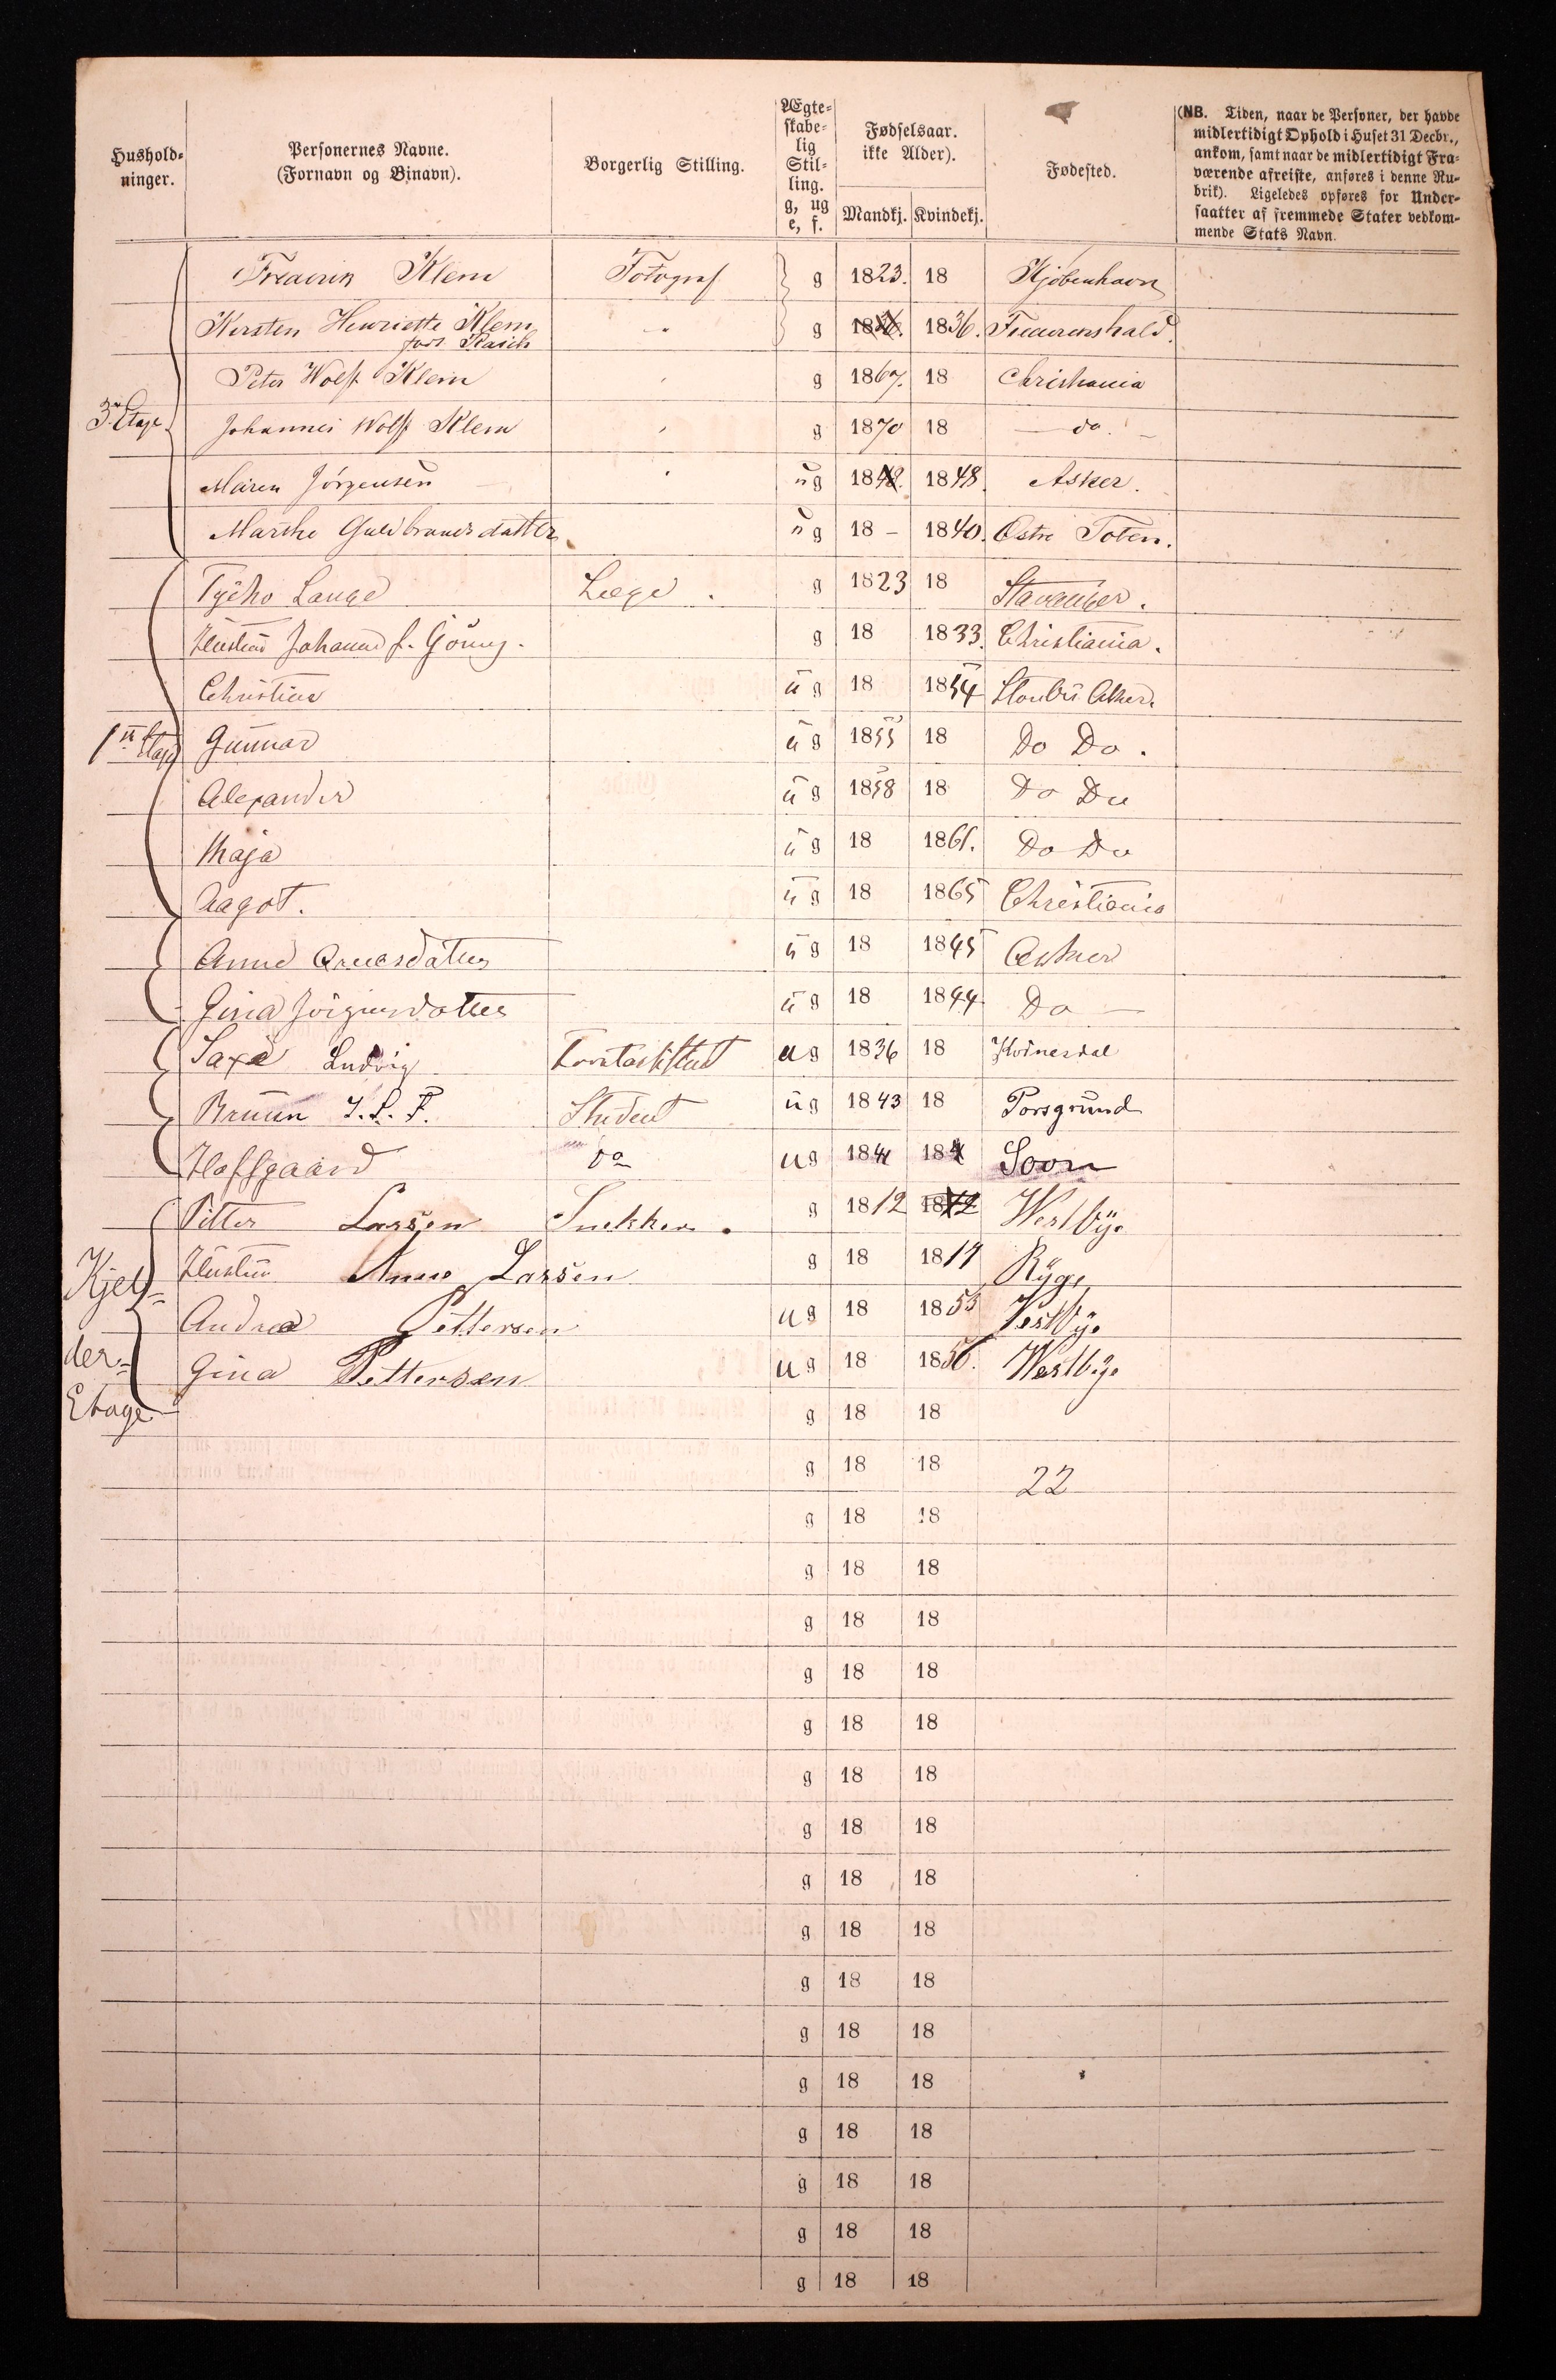 Hushold-
ninger.
Personernes Navne.
(Fornavn og Binavn).
Borgerlig Stilling.
Ægte-
skabe-
lig
Stil-
ling.
g, ug
e, f.
Fødselsaar.
ikke Alder).
Mandkj. Kvindekj.
Fødested.
(NB. Tiden, naar de Personer, der havde
midlertidigt Ophold i Huset 31 Decbr.,
ankom, samt naar de midlertidigt Fra-
værende afreiste, anføres i denne Ru-
brik). Ligeledes opføres for Under-
saatter af fremmede Stater vedkom-
mende Stats Navn.
Frederik Klem Fotograf g 1823. 18 Kjøbenhavn
Kirsten Henriette Klem g 1836. 1836. Frederikshald.
født Rasch
Peter Wolff Klem g 1867. 18 Christiania
3die Etage Johannes Wolff Klem g 1870 18 do.
Maren Jørgensen ug 1848. 1848. Asker.
Marthe Guldbrandsdatter ug 18 - 1840. Østre Toten.
Tycho Lange Læge . g 1823 18 Stavanger.
Hustru Johanne f. g 18 1833. Christiania.
Christine ug 18 1854 Aker.
1ste Etage Gunnar ug 1855 18 Do Do .
Alexander ug 1858 18 Do Do
Maja ug 18 1861. Do Do
Aagot. ug 18 1865 Christiania
Anne ug 18 1845 Asker
Gina Jörgensdatter ug 18 1844 Do —
Saxe Ludvig ug 1836 18 Kvinesdal
Bruun J. L. F. Student ug 1843 18 Porsgrund
Hoffgaard do ug 1841 184 Soon
Petter Larsen Snekker . g 1812 1812 Westbye
Hustru Anne Larsen g 18 1819 Ryge
Kjel-
Andrea Pettersen ug 18 1853 Vestbye
der-
Gina Pettersen ug 18 1856. Westbye
Etage g 18 18
g 18 18 22
g 18 18
g 18 18
g 18 18
g 18 18
g 18 18
g 18 18
g 18 18
g 18 18
g 18 18
g 18 18
g 18 18
g 18 18
g 18 18
g 18 18
g 18 18
g 18 18